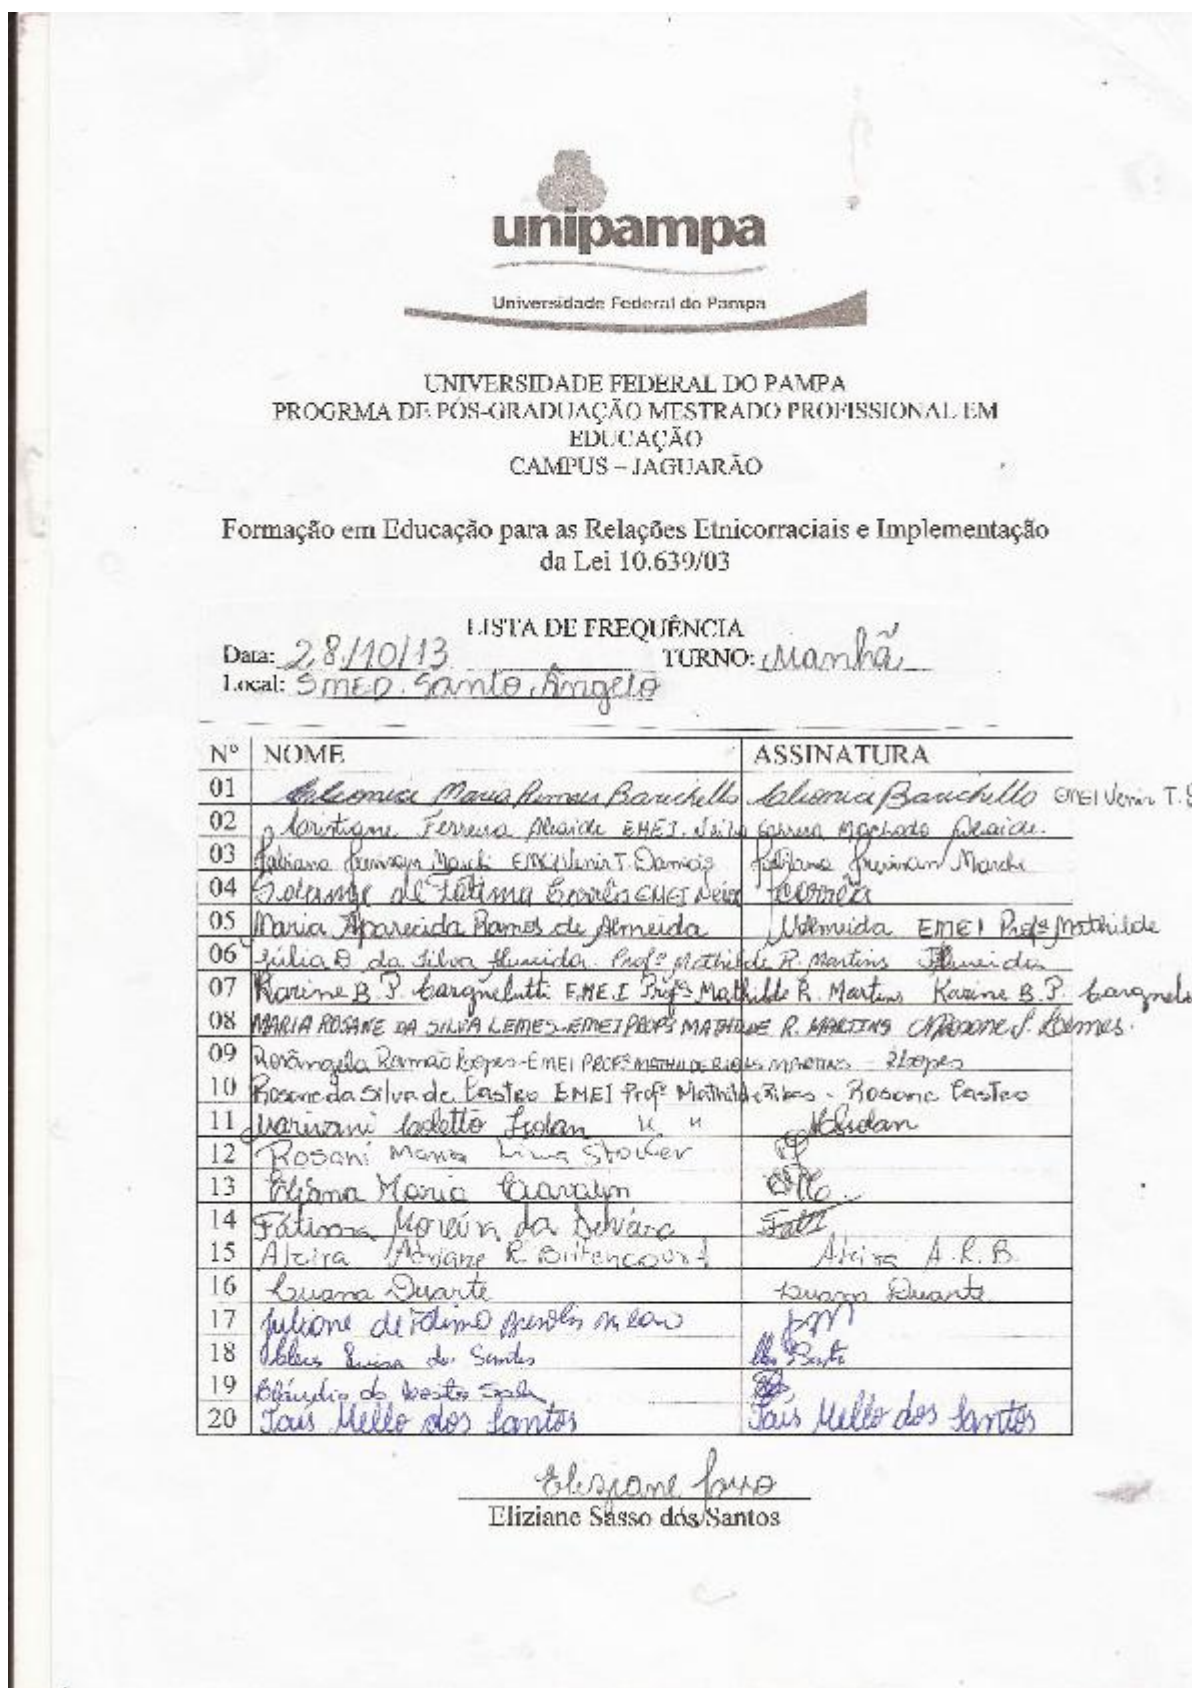 unipampa
Universidade Federal do Pampa
UNIVERSIDADE FEDERAL DO PAMPA
PROGRMA DE PÓS-GRADUAÇÃO MESTRADO PROFISSIONAL EM
EDUCAÇÃO
CAMPUS – JAGUARÃO
Formação em Educação para as Relações Etnicorraciais e Implementação
da Lei 10.639/03
LISTA DE FREQUÊNCIA
Data: 28/10/13 TURNO: Manhã
Local: SMED. Santo Ângelo
Nº NOME ASSINATURA
01 Maria Barichello Barichello EMEI Venir T.
02 Ferreira EMEI. Machado
03 Fabiana EMEI Venir T. Damias Fabiana
04 Solange de Fátima EMEI Neiva Corrêa
05 Maria Aparecida Ramos de Almeida Almeida EMEI Profª Mathilde
06 Júlia D. da Silva Almeida. Profª Mathilde R. Martins Almeida
07 Karine B. P. Cargnelutti E.M.E.I Profª Mathilde R. Martins Karine B. P.
08 MARIA ROSANE DA SILVA LEMES-EMEI PROFª MATHILDE R. MARTINS Rosane S. Lemes.
09 Rosângela Ramão Lopes-EMEI PROFª MATHILDE RIBAS MARTINS - RLopes
10 Rosane da Silva de Castro EMEI Profª Mathilde Ribas - Rosane Castro
11 Marivani " "
12 Rosani Maria Lima Stocker
13 Eliana Maria
14 Fátima Moreira da
15 Alzira Adriane R. Bittencourt Alzira A.R.B.
16 Luana Duarte Luana Duarte
17 Juliane de Fátima
18 Luisa dos Santos
19 Cláudia da Costa
20 Taís Mello dos Santos Taís Mello dos Santos
Eliziane Sasso
Eliziane Sasso dos Santos